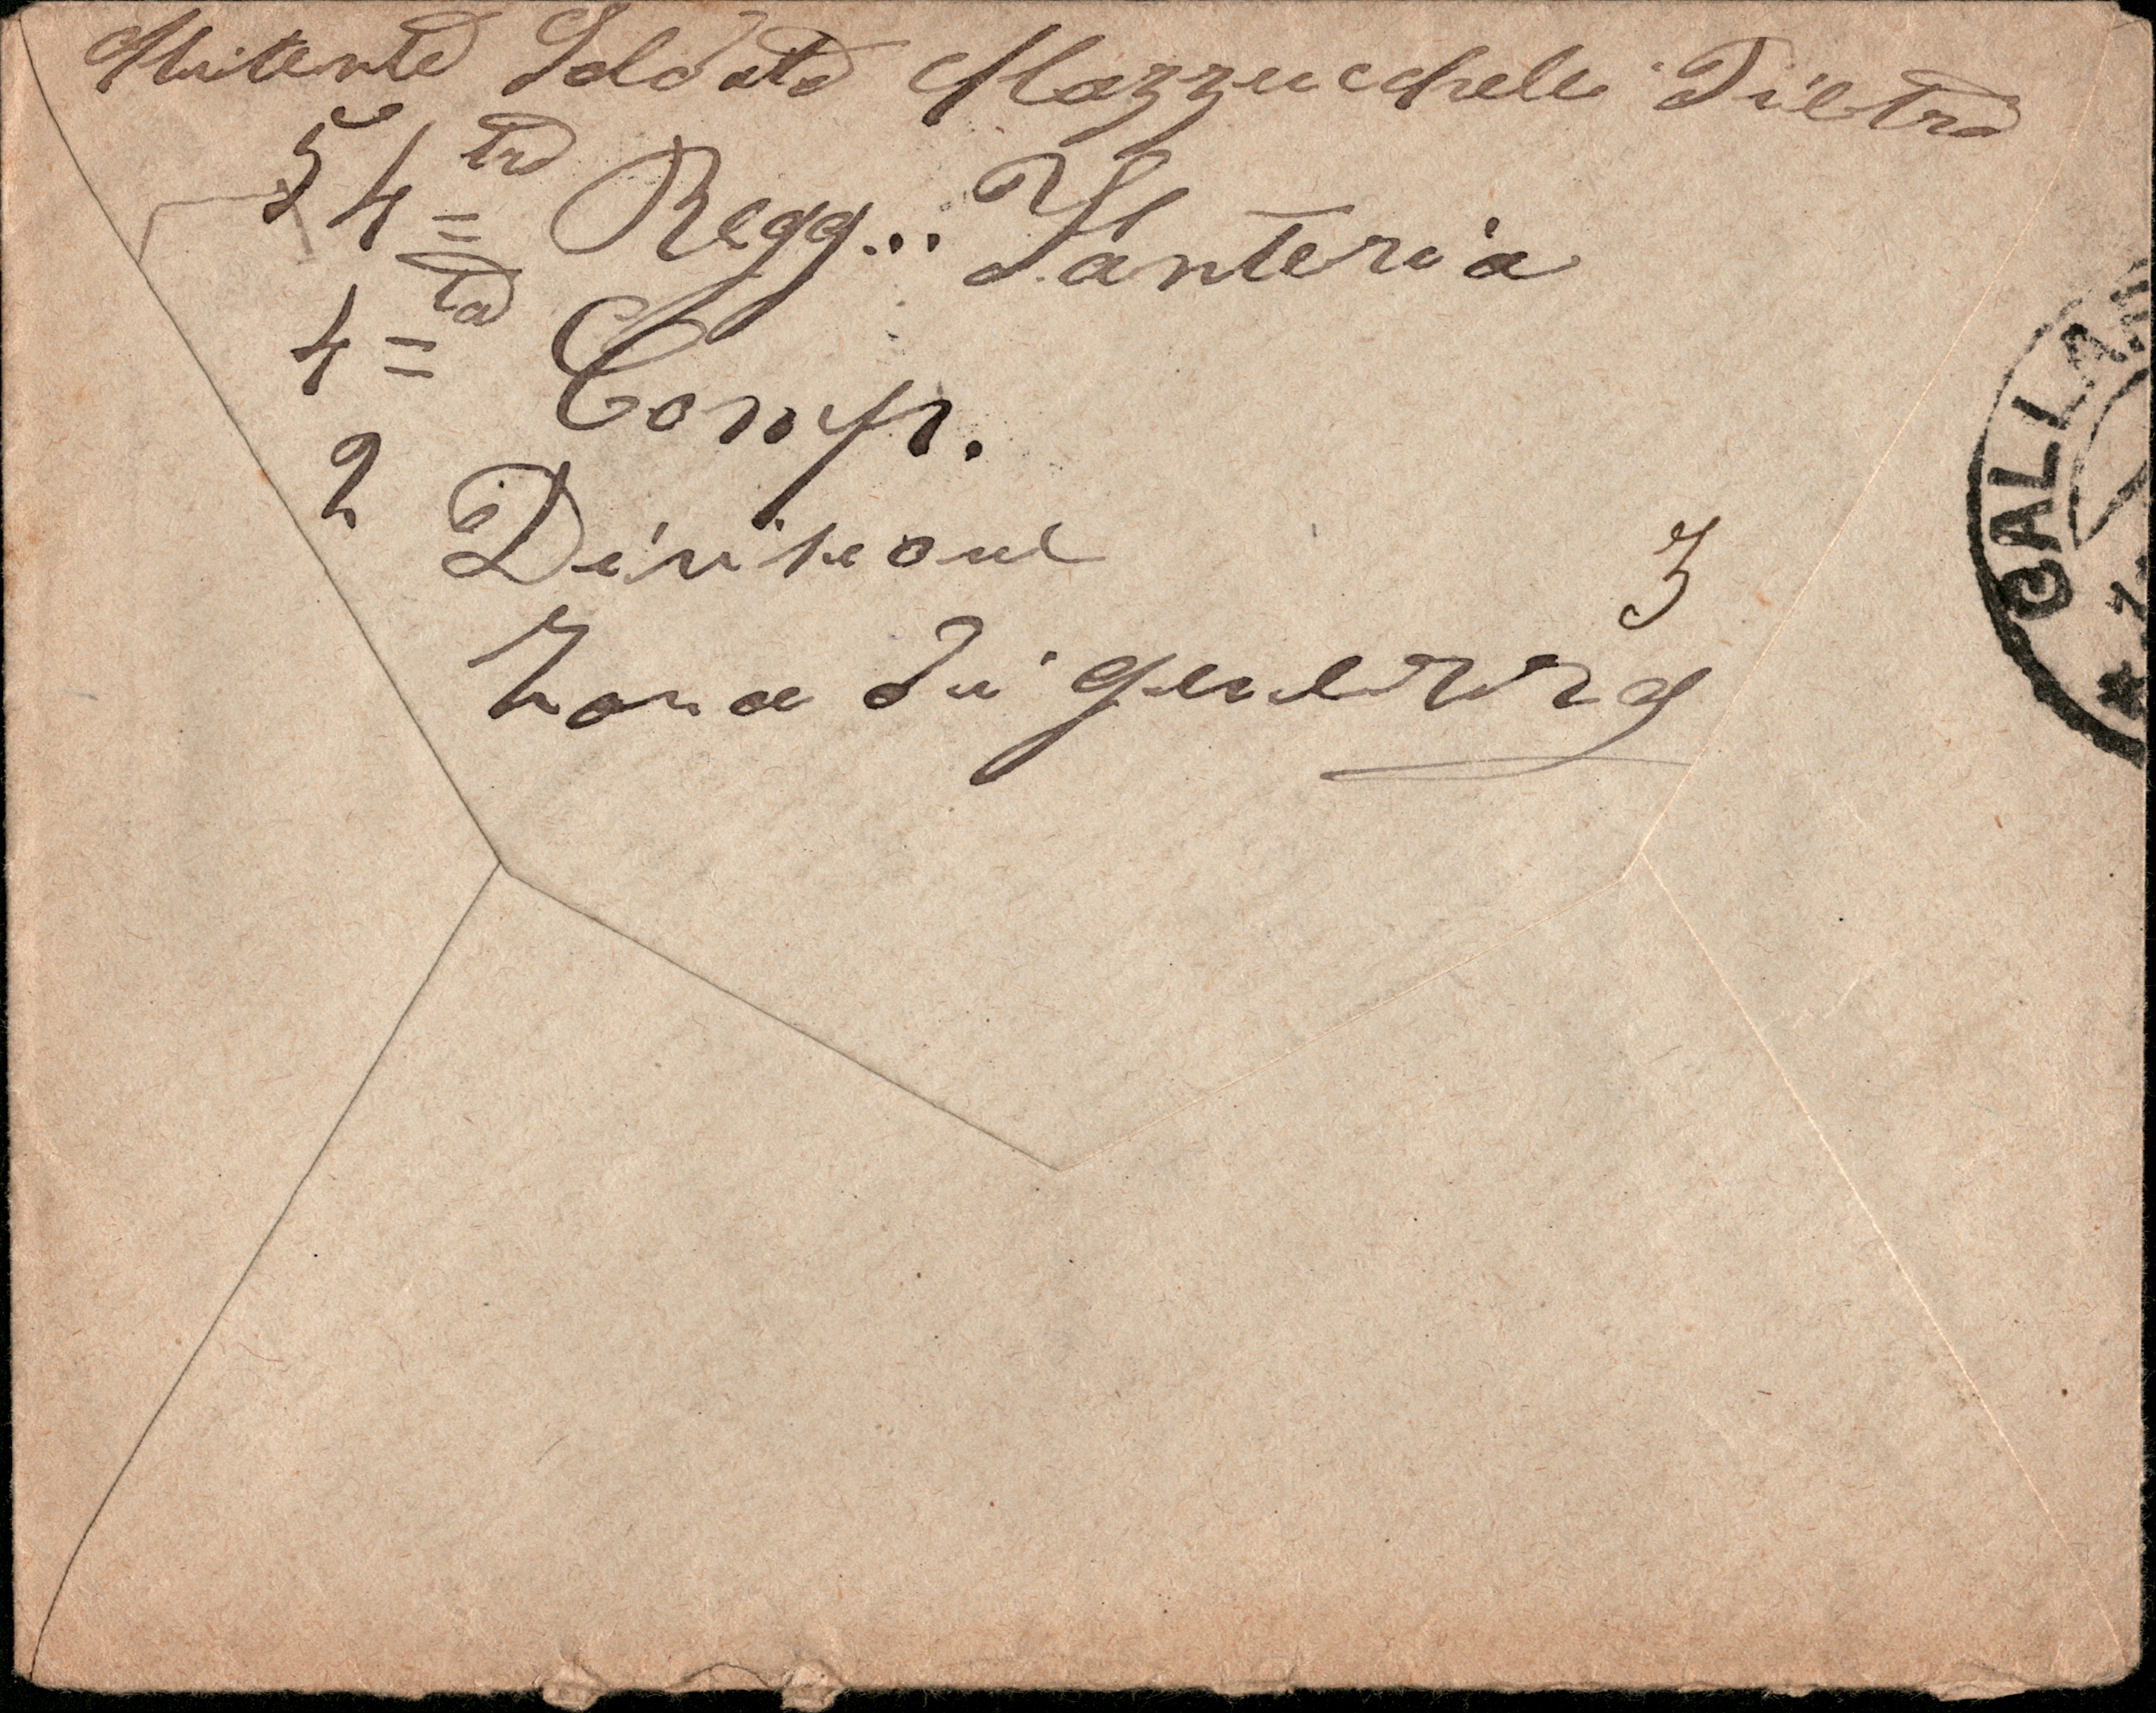 Mitente Soldato Mazzucchele Pietro
54=tro Regg... Fanteria
4=ta Comp.
2 Divisione
3
Zona di guerra
GALLA